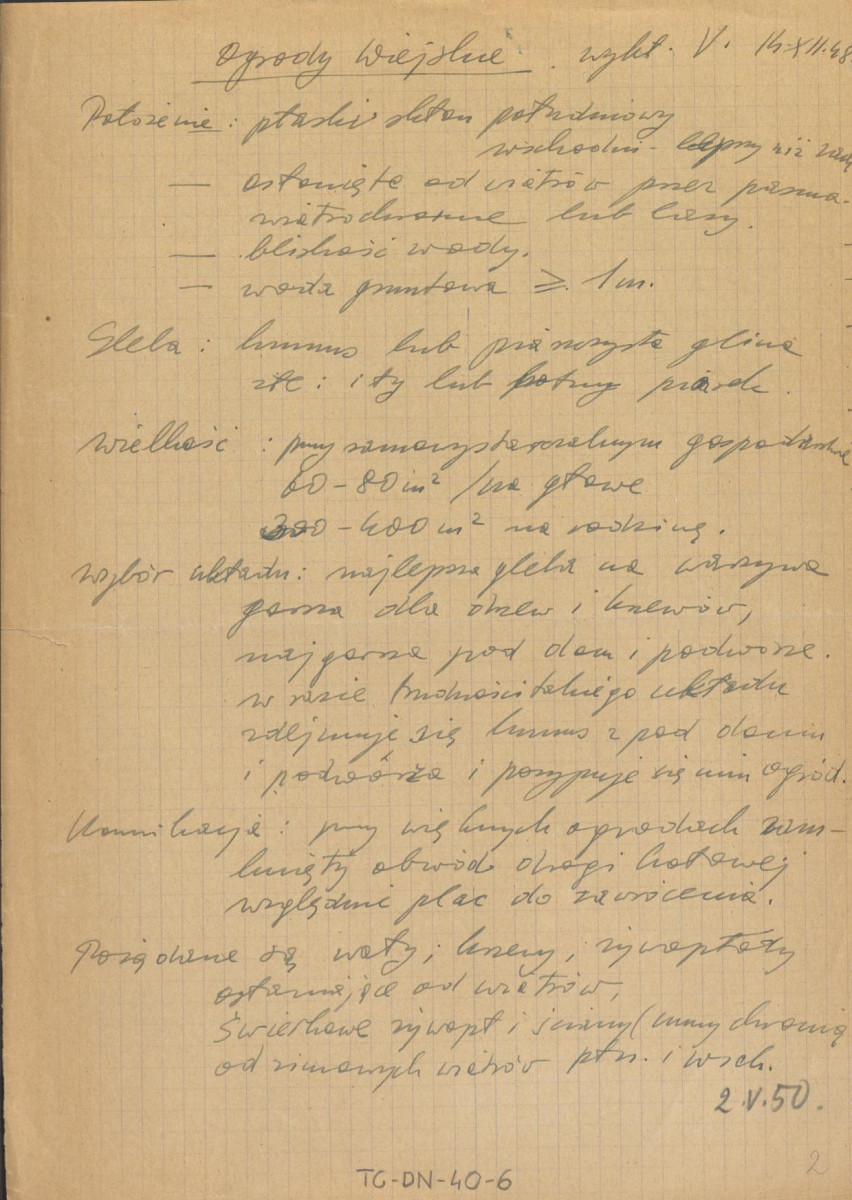 Ogrody Wiejskie. wykł. V. 14.XII.48.
Położenie: płaski skłon południowy
wschodni - lepszy niż zach
— osłonięte od wiatrów przez pasma
wiatrochronne lub lasy.
— bliskość wody.
— woda gruntowa ≥ 1 m.
Gleba: humus lub piaszczysta glina
złe: iły lub lotny piasek.
Wielkość: przy samowystarczalnym gospodarstwie
60-80 m² /na głowę
300-400 m² na rodzinę.
Wybór układu: najlepsza gleba na warzywa
gorsza dla drzew i krzewów,
najgorsza pod dom i podwórze.
w razie trudności takiego układu
zdejmuje się humus z pod domu
i podwórza i posypuje się nim ogród.
Komunikacja: przy większych ogrodach zam-
knięty obwód drogi kołowej
względnie plac do zawrócenia.
Pożądane są wały, krzewy, żywopłoty
osłaniające od wiatrów,
Świerkowe żywopł i ściany (mury chronią
od zimowych wiatrów płn. i wsch.
2.V.50.
2
TG-DN-40-6